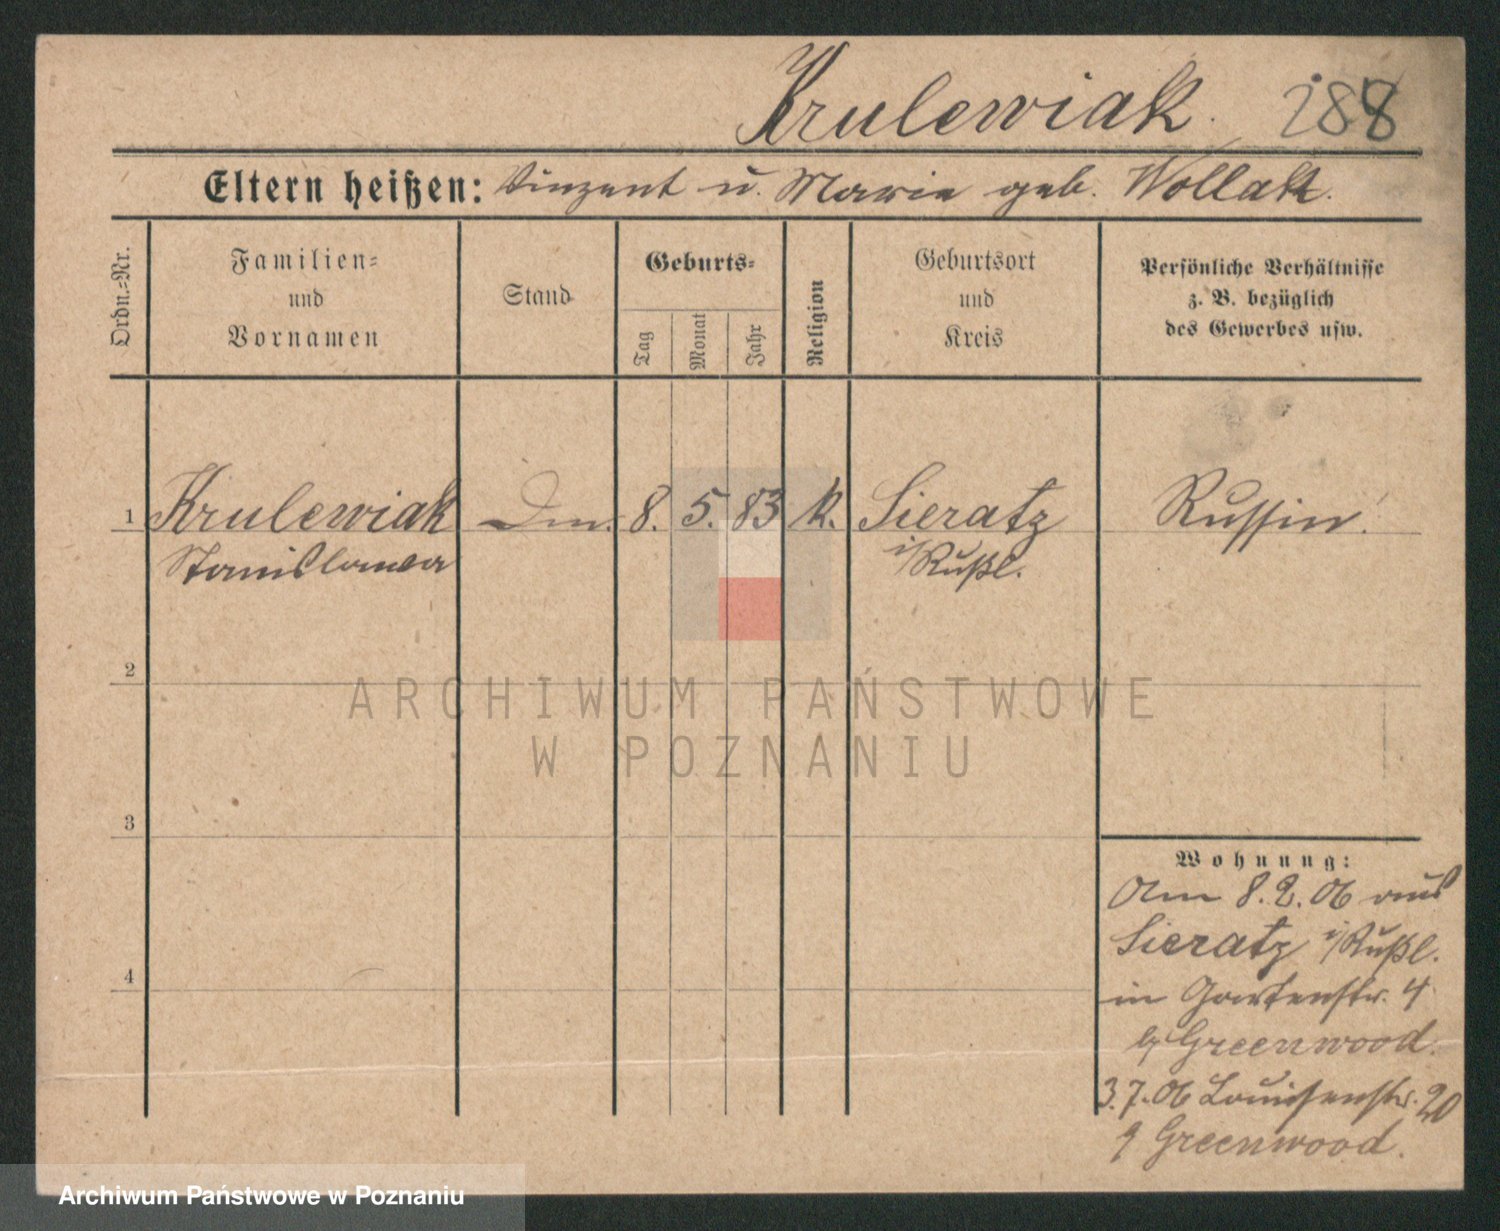 Krulewiak. 288
Eltern heißen: Vinzent u. Marie geb. Wollak.
Ordn.-Nr.
Familien-
und
Vornamen
Stand
Geburts-
Tag
Monat
Jahr
Religion
Geburtsort
und
Kreis
Persönliche Verhältnisse
z. B. bezüglich
des Gewerbes usw.
1 Krulewiak 8. 5. 83 k. Sieratz Russin.
Stanislawa i/Rußl.
2
ARCHIWUM PAŃSTWOWE
W POZNANIU
3
Wohnung:
Am 8. 2. 06 aus
Sieratz i/Rußl.
4
in Gartenstr. 4
b/ Greenwood.
3.7.06 Louisenstr. 20
Greenwood.
Archiwum Państwowe w Poznaniu